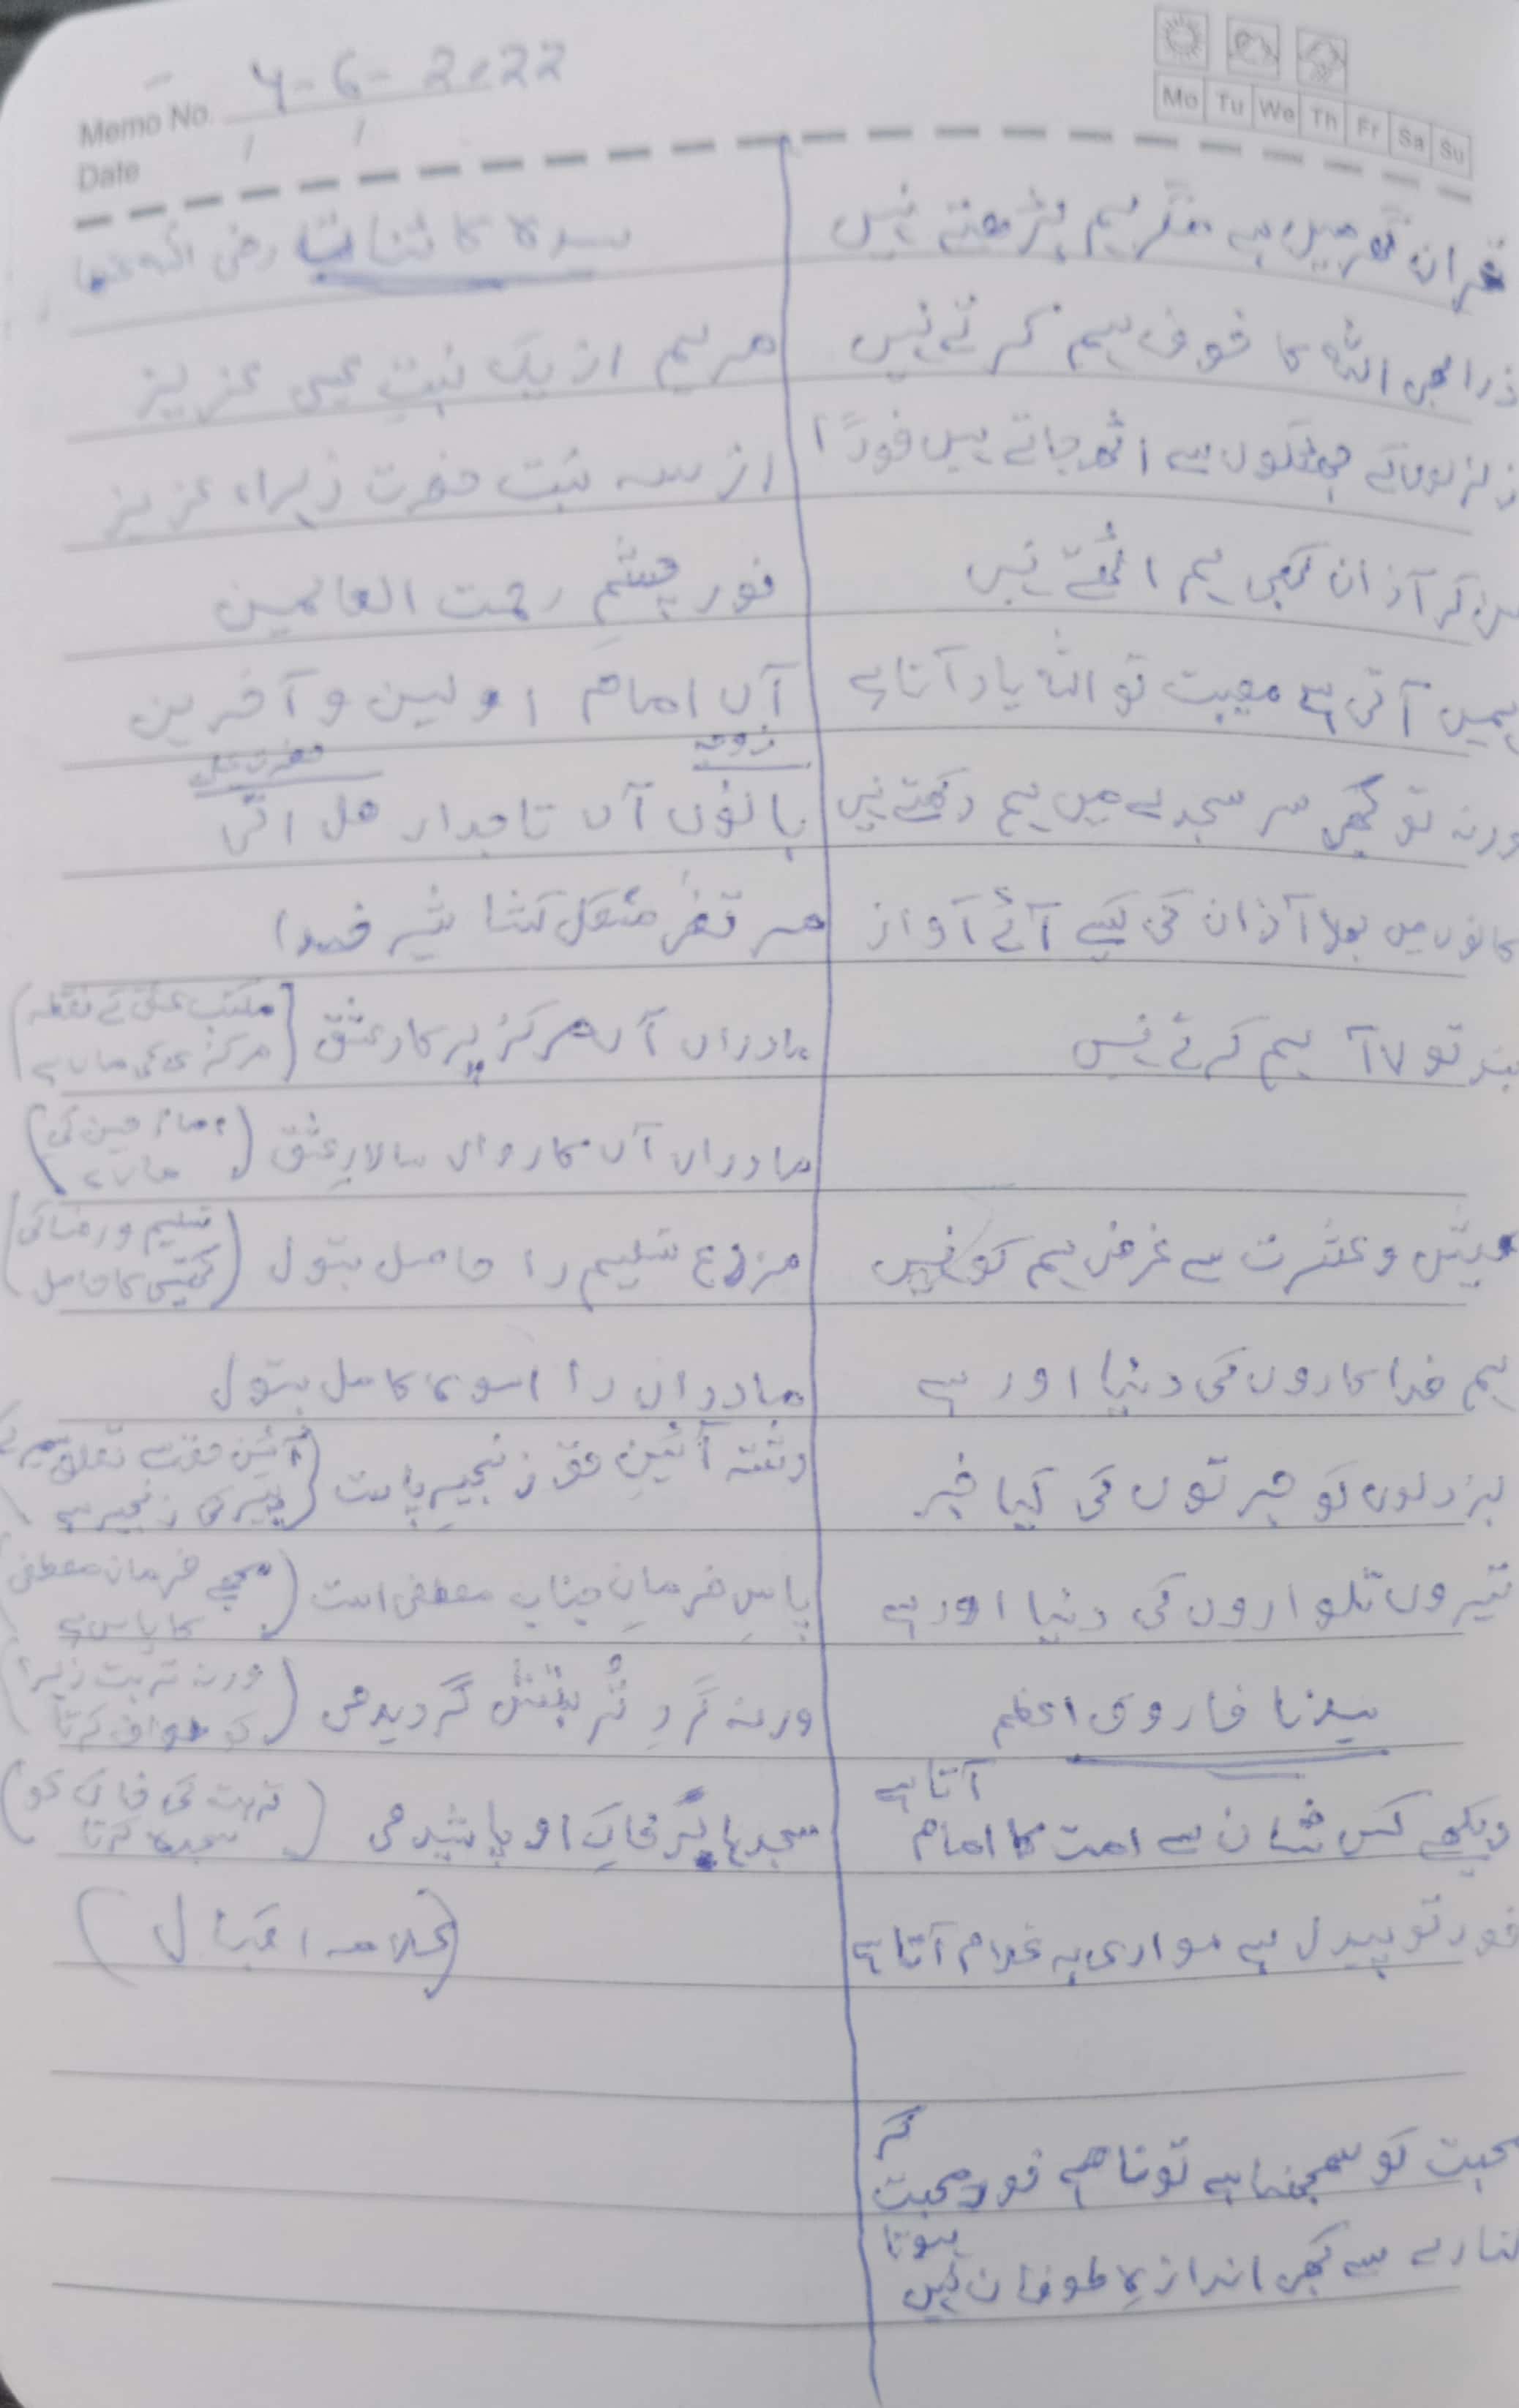 Memo No. 4-6-2022
Date
Mo Tu We Th Fr Sa Su
قرآن گھر میں ہے مگر ہم پڑھتے نہیں
ذرا بھی اللہ کا خوف ہم کرتے نہیں
زلزلوں کے جھٹکوں سے اٹھ جاتے ہیں فورًا
سن کر آذان کبھی ہم اٹھتے نہیں
ہمیں آتی ہے مصیبت تو اللہ یاد آتا ہے
ورنہ تو کبھی سر سجدے میں ہم رکھتے نہیں
کانوں میں بھلا آذان کی کیسے آئے آواز
بند تو ہم کرتے نہیں
عیش و عشرت سے غرض ہم کو نہیں
ہم فداکاروں کی دنیا اور ہے
بزدلوں کو جرتوں کی کیا خبر
تیروں تلواروں کی دنیا اور ہے
سیدنا فاروق اعظم
دیکھے کس شان سے امت کا امام آتا ہے
خود تو پیدل ہے سواری پہ غلام آتا ہے
محبت کو سمجھنا ہے تو ناصح خود محبت کر
کنارے سے کبھی اندازہِ طوفان نہیں ہوتا
سیدہ کائنات رضی اللہ عنہا
مریم از یک نسبتِ عیسی عزیز
از سہ نسبت حضرت زہراء عزیز
نور چشمِ رحمت العالمین
آں امامِ اولین و آخرین
زوجہ حضرت علی
بانوں آں تاجدار ھل اتٰی
مرتضٰی مشکل کشا شیر خدا
مادراں آں مرکز پرکار عشق (مکتب عشق کے نقطہ مرکزی کی ماں ہے)
مادراں آں کارواں سالارِ عشق (امام حسین کی ماں ہے)
مزرع تسلیم را حاصل بتول (تسلیم و رضا کی کھیتی کا حاصل)
مادراں را اسوہ کامل بتول
رشتہ آئینِ حق زنجیرِ پا ست (آئین حق سے تعلق میرے پیر کی زنجیر ہے
پاسِ فرمانِ جنابِ مصطفی است (مجھے فرمان مصطفی کا پاس ہے
ورنہ گردِ تُربتش گردیدمی (ورنہ تربت زہرا کو طواف کرتا
سجدہا بر خاکِ او پاشیدمی (تربت کی خاک کو سجدہ کرتا)
(علامہ اقبال)